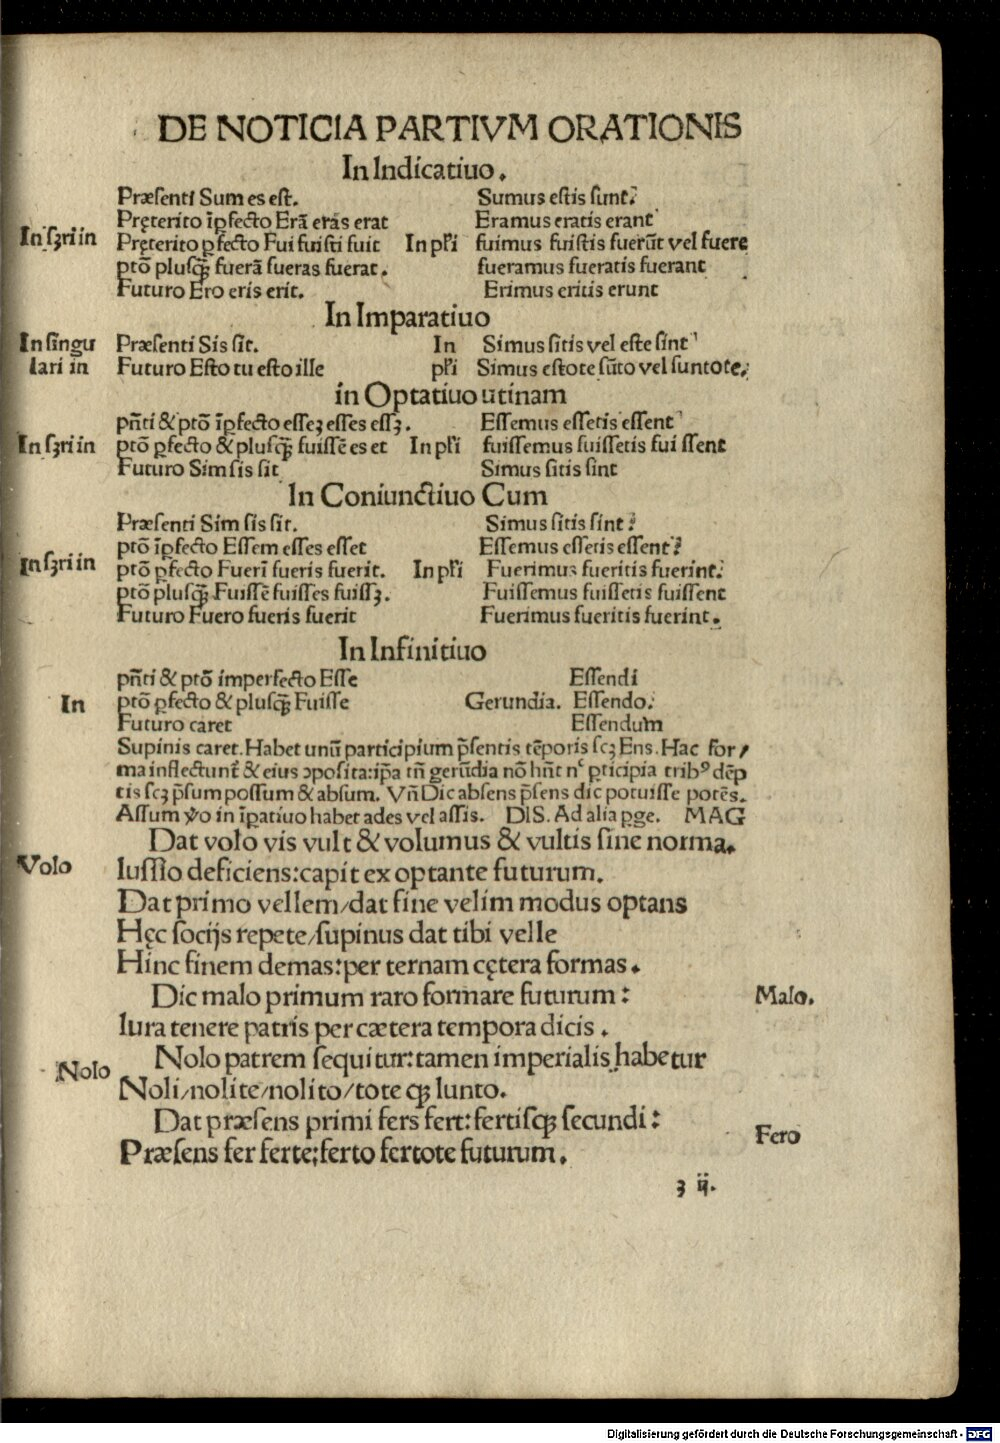 DE NOTICIA PARTIVM ORATIONIS
In Indicatiuo.
Præſenti Sum es eſt. Sumus eſtis ſunt.
Pręterito īꝑfecto Erā eras erat Eramus eratis erant
In ſꝫri in Pręterito ꝑfecto Fui fuiſti fuit In pl̄i fuimus fuiſtis fuerūt vel fuere
ptō pluſqꝫ̄ fuerā fueras fuerat. fueramus fueratis fuerant
Futuro Ero eris erit. Erimus eritis erunt
In Imparatiuo
In ſingu Præſenti Sis ſit. In Simus ſitis vel eſte ſint
lari in Futuro Eſto tu eſto ille pl̄i Simus eſtote ſūto vel ſuntote.
in Optatiuo utinam
pn̄ti & ptō īꝑfecto eſſeꝫ eſſes eſſꝫ. Eſſemus eſſetis eſſent
In ſꝫri in ptō ꝑfecto & pluſqꝫ̄ fuiſſē es et In pl̄i fuiſſemus fuiſſetis fui ſſent
Futuro Sim ſis ſit Simus ſitis ſint
In Coniunctiuo Cum
Præſenti Sim ſis ſit. Simus ſitis ſint.
ptō īꝑfecto Eſſem eſſes eſſet Eſſemus eſſetis eſſent
In ſꝫri in ptō ꝑfecto Fuerī fueris fuerit. In pl̄i Fuerimus fueritis fuerint.
ptō pluſqꝫ̄ Fuiſſē fuiſſes fuiſſꝫ. Fuiſſemus fuiſſetis fuiſſent
Futuro Fuero fueris fuerit Fuerimus fueritis fuerint.
In Infinitiuo
pn̄ti & ptō imperfecto Eſſe Eſſendi
In ptō ꝑfecto & pluſqꝫ̄ Fuiſſe Gerundia. Eſſendo.
Futuro caret Eſſendum
Supinis caret. Habet unū participium p̄ſentis tēporis ſcꝫ Ens. Hac for/
ma inflectunt̄ & eius ↄpoſita: ip̄a tn̄ gerūdia nō hn̄t nᶜ ꝑticipia tribꝰ dēp
tis ſcꝫ p̄ſum poſſum & abſum. Vn̄ Dic abſens p̄ſens dic potuiſſe potēs.
Aſſum v̊o in īꝑatiuo habet ades vel aſſis. DIS. Ad alia ꝑge. MAG
Dat volo vis vult & volumus & vultis ſine norma.
Volo Iuſſio deficiens: capit ex optante futurum.
Dat primo vellem/dat fine velim modus optans
Hęc ſocijs repete/ſupinus dat tibi velle
Hinc finem demas: per ternam cętera formas.
Dic malo primum raro formare futurum: Malo.
Iura tenere patris per cætera tempora dicis.
Nolo Nolo patrem ſequitur: tamen imperialis habetur
Noli/nolite/nolito/tote qꝫ lunto.
Dat præſens primi fers fert: fertiſqꝫ ſecundi: Fero
Præſens fer ferte; ferto fertote futurum.
ꝫ ij.
Digitalisierung gefördert durch die Deutsche Forschungsgemeinschaft - DFG